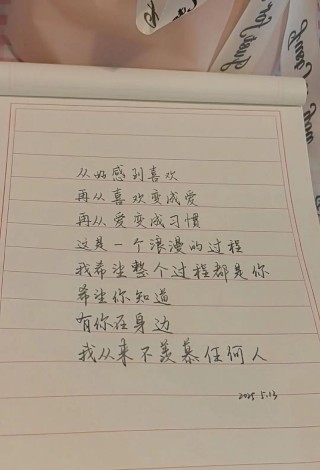 从好感到喜欢
再从喜欢变成爱
再从爱变成习惯
这是一个浪漫的过程
我希望整个过程都是你
希望你知道
有你在身边
我从来不羡慕任何人
2025 5.13